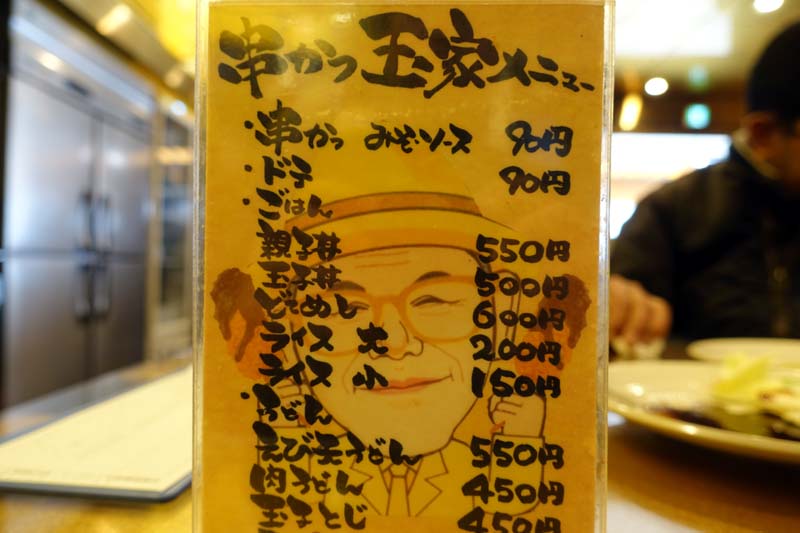 串かつ 玉家 メニュー
・串かつ みそ・ソース 90円
・ドテ 90円
・ごはん
親子丼 550円
玉子丼 500円
どてめし 600円
ライス 大 200円
ライス 小 150円
・うどん
えび天うどん 550円
肉うどん 450円
玉子とじ 450円